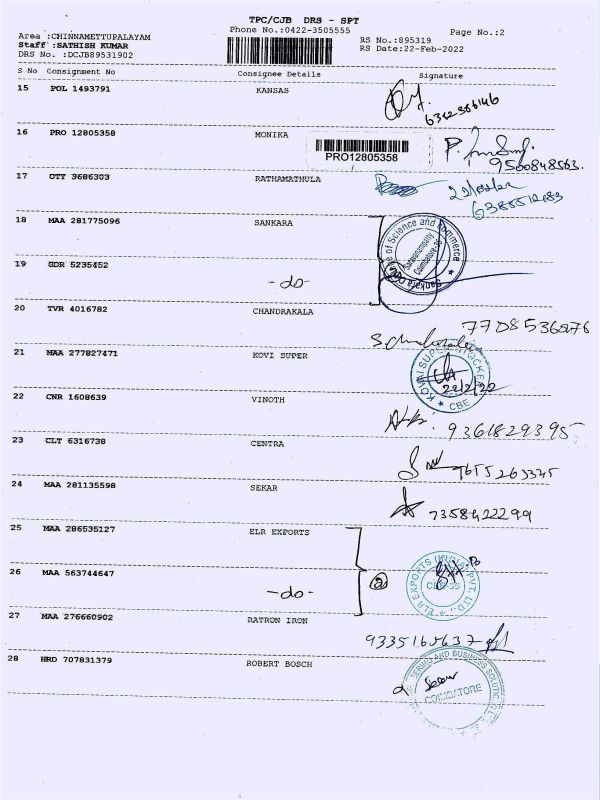 TPC/CJB DRS - SPT
Phone No.:0422-3505555
Page No.:2
Area :CHINNAMETTUPALAYAM
RS No.:895319
Staff :SATHISH KUMAR
RS Date:22-Feb-2022
DRS No. :DCJB89531902
S No Consignment No Consignee Details Signature
15 POL 1493791 KANSAS
6342386146
16 PRO 12805358 MONIKA
PRO12805358
9500848563.
17 OTT 3686303 RATHAMATHULA
18 MAA 281775096 SANKARA
Sankara College of Science and Commerce
Saravanampatty
Coimbatore-35
19 GDR 5235452 -do-
20 TVR 4016782 CHANDRAKALA
7708536276
21 MAA 277827471 KOVI SUPER
22/2/22
CBE
22 CNR 1608639 VINOTH
9361829395
23 CLT 6316738 CENTRA
24 MAA 281135598 SEKAR
7358422299
25 MAA 286535127 ELR EXPORTS
ELR EXPORTS PVT. LTD.
26 MAA 563744647 -do-
27 MAA 276660902 RATRON IRON
9335165637
28 HRD 707831379 ROBERT BOSCH
AND BUSINESS SOLUTIONS
COIMBATORE